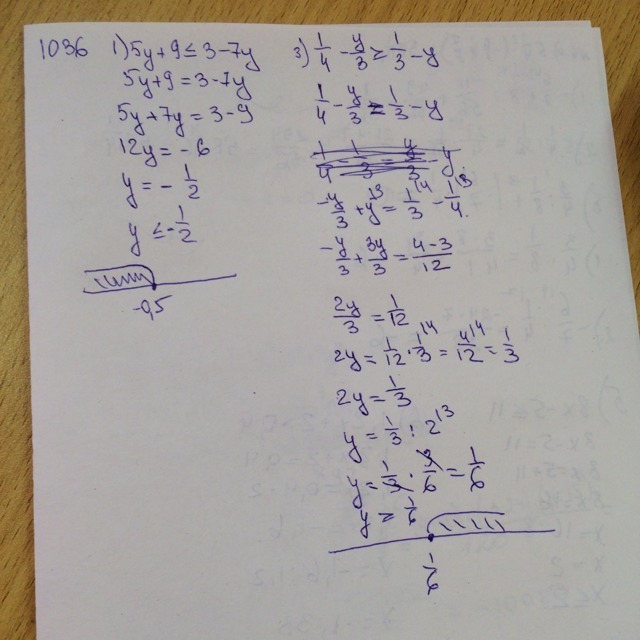 1036 1) 5y+9 ≤ 3-7y
5y+9 = 3-7y
5y+7y = 3-9
12y = -6
y = -1/2
y ≤ -1/2
-0,5
3) 1/4 - y/3 ≥ 1/3 - y
1/4 - y/3 = 1/3 - y
-y/3 + y^{\3} = 1/3^{\4} - 1/4^{\3}
-y/3 + 3y/3 = (4-3)/12
2y/3 = 1/12
2y = 1/12 · 1/3^{\4} = 4/12^{\4} = 1/3
2y = 1/3
y = 1/3 : 2^{\3}
y = 1/3 · 3/6 = 1/6
y ≥ 1/6
1/6